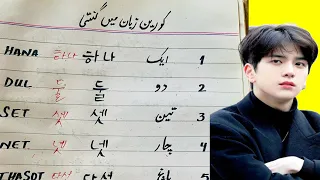 کورین زبان میں گنتی
HANA 하나 하나 ایک 1
DUL 둘 둘 دو 2
SET 셋 셋 تین 3
NET 넷 넷 چار 4
THASOT 다섯 다섯 پانچ 5